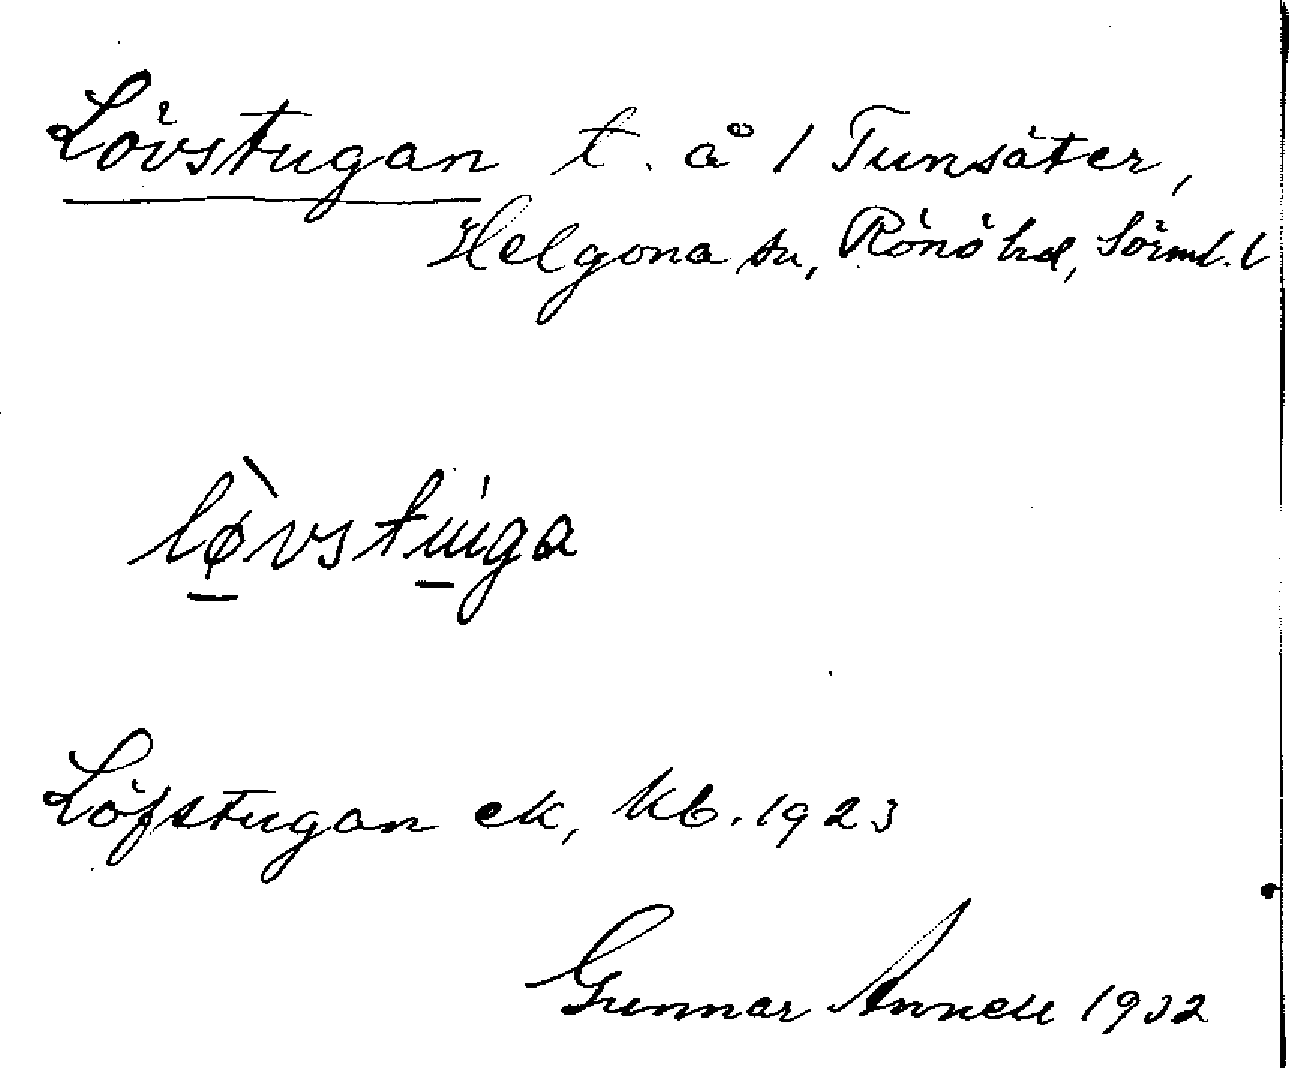 Lövstugan t. å 1 Tunsäter,
Helgona sn, Rönö hd, Sörml. l
lø̀vstu̇ga
Löfstugan ek, kb. 1923
Gunnar Annell 1932